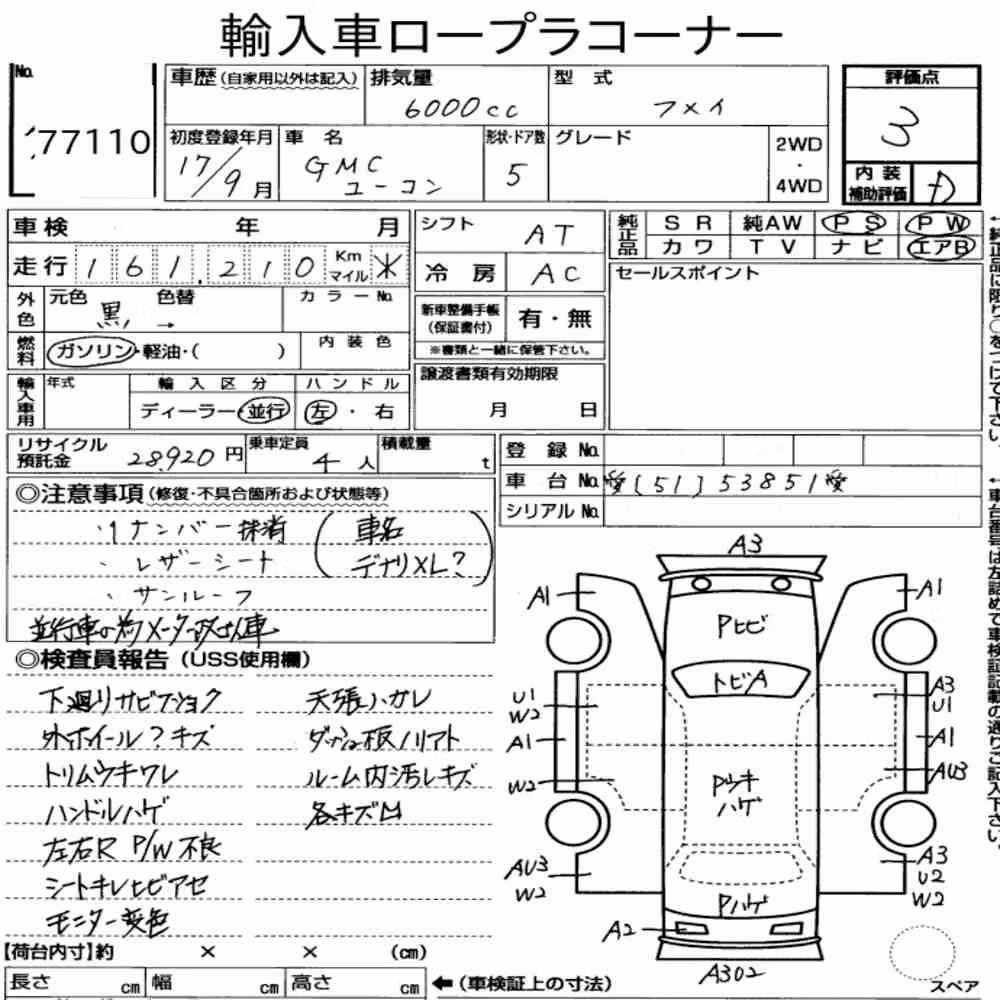 輸入車ロープラコーナー
No.
77110
車歴(自家用以外は記入)
排気量
6000cc
型式
フメイ
評価点
3
初度登録年月
17/9月
車名
GMC
ユーコン
形状・ドア数
5
グレード
2WD
・
4WD
内装
補助評価
D
車検 年 月
シフト AT
純正品
SR 純AW PS PW
カワ TV ナビ エアB
走行 161,210 Km マイル
冷房 AC
セールスポイント
外色
元色 色替
黒 →
カラーNo.
新車整備手帳
(保証書付)
有・無
※書類と一緒に保管下さい。
燃料
ガソリン・軽油・( )
内装色
譲渡書類有効期限
月 日
輸入車用
年式
輸入区分
ディーラー・並行
ハンドル
左・右
リサイクル
預託金
28,920円
乗車定員
4人
積載量
t
登録No.
車台No. 愛[51]53851愛
シリアルNo.
◎注意事項(修復・不具合箇所および状態等)
ナンバー抹消
レザーシート
(車名
デナリXL?)
・サンルーフ
並行車の為メーター改ざん車
◎検査員報告(USS使用欄)
下廻りサビフショク
天張ハガレ
外ホイール?キズ
ダッシュ板ノリアト
トリムウキワレ
ルーム内汚レキズ
ハンドルハゲ
各キズ凹
左右R P/W不良
シートキレヒビアセ
モニター変色
A3
A1
A1
Pヒビ
トビA
U1
W2
A3
U1
A1
A1
W2
AU3
Pウキ
ハゲ
AU3
W2
A3
U2
W2
Pハゲ
A2
A302
スペア
【荷台内寸】約 × × (cm)
長さ cm 幅 cm 高さ cm
←(車検証上の寸法)
←純正品に限り○をつけて下さい。
←車台番号は左詰めで車検証記載の通りご記入下さい。